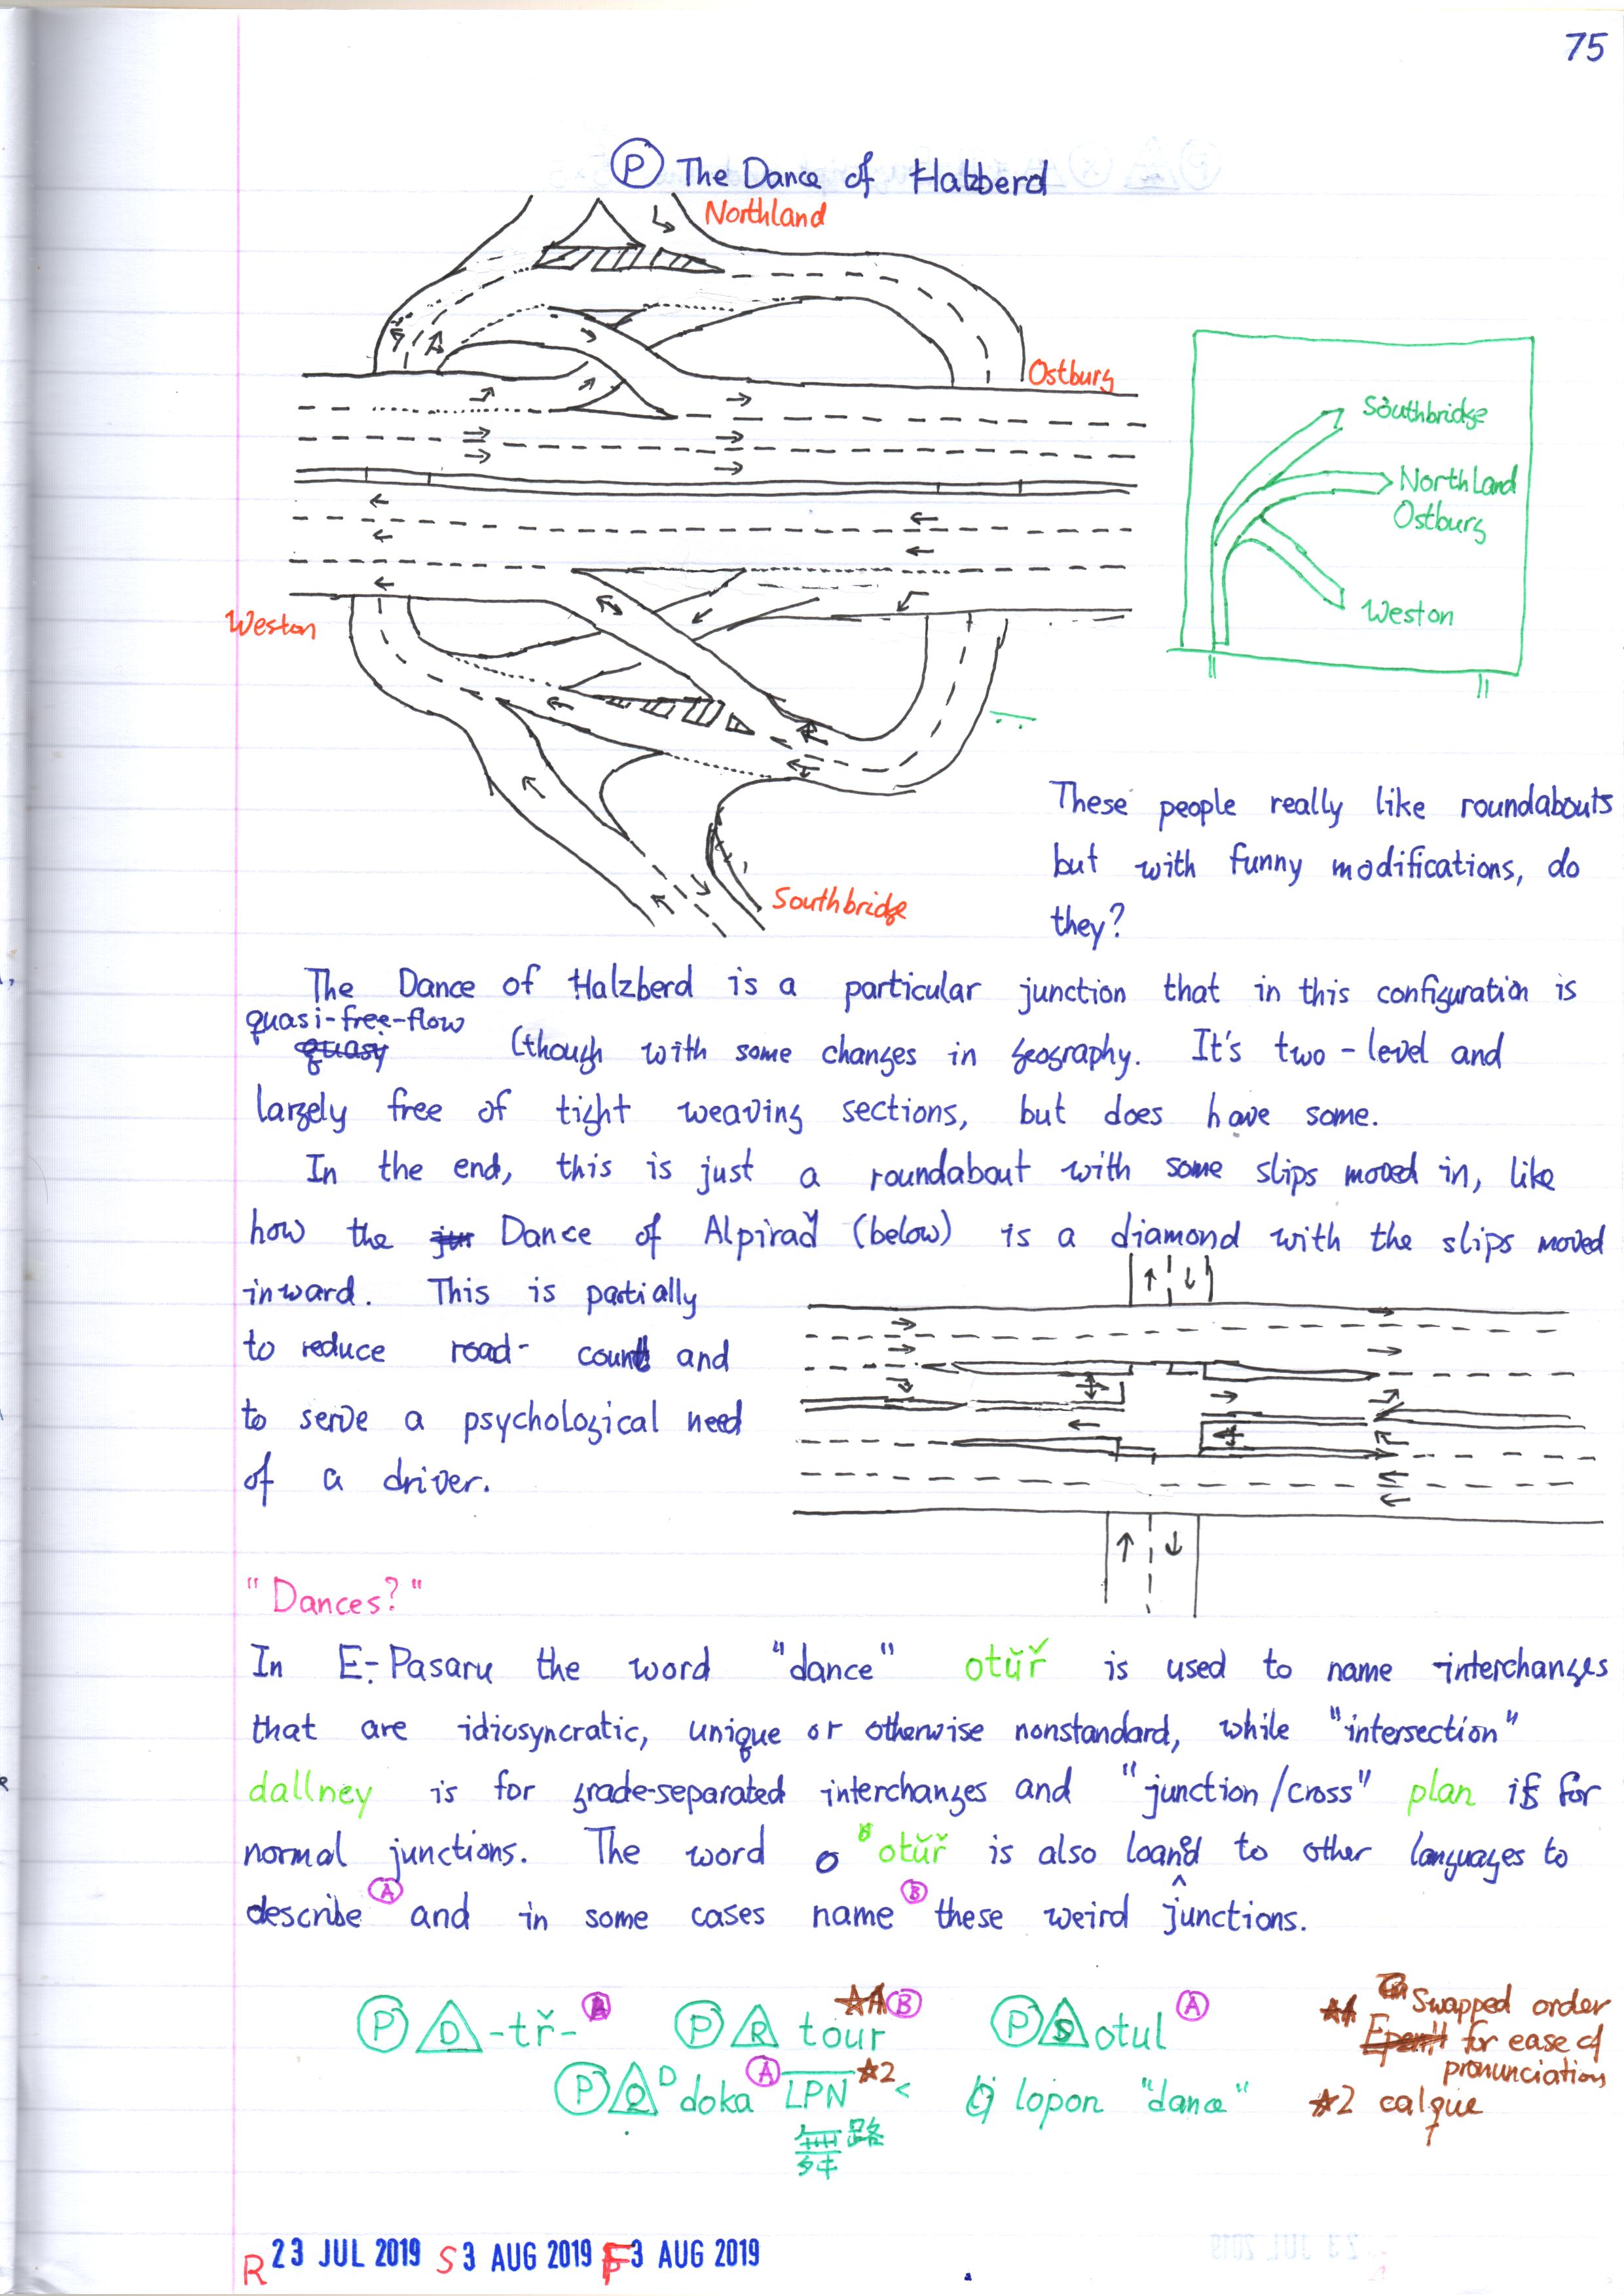 75
Ⓟ The Dance of Halzberd
Northland
Ostburg
Southbridge
Northland
Ostburg
Weston
Weston
Southbridge
These people really like roundabouts
but with funny modifications, do
they?
The Dance of Halzberd is a particular junction that in this configuration is
quasi-free-flow
quasy (though with some changes in geography. It's two-level and
largely free of tight weaving sections, but does have some.
In the end, this is just a roundabout with some slips moved in, like
how the jun Dance of Alpirař (below) is a diamond with the slips moved
inward. This is partially
to reduce road-count and
to serve a psychological need
of a driver.
"Dances?"
In E-Pasaru the word "dance" otŭř is used to name interchanges
that are idiosyncratic, unique or otherwise nonstandard, while "intersection"
dallney is for grade-separated interchanges and "junction/cross" plan is for
normal junctions. The word o otŭř is also loaned to other languages to
describe Ⓐ and in some cases name Ⓑ these weird junctions.
Ⓟ D -tř- Ⓟ R tour ☆1 Ⓑ Ⓟ S otul Ⓐ
☆1 Swapped order
for ease of
pronunciation
Ⓟ D doka Ⓐ LPN ☆2 < lopon "dance"
☆2 calque
舞路
R 23 JUL 2019 S 3 AUG 2019 F 3 AUG 2019